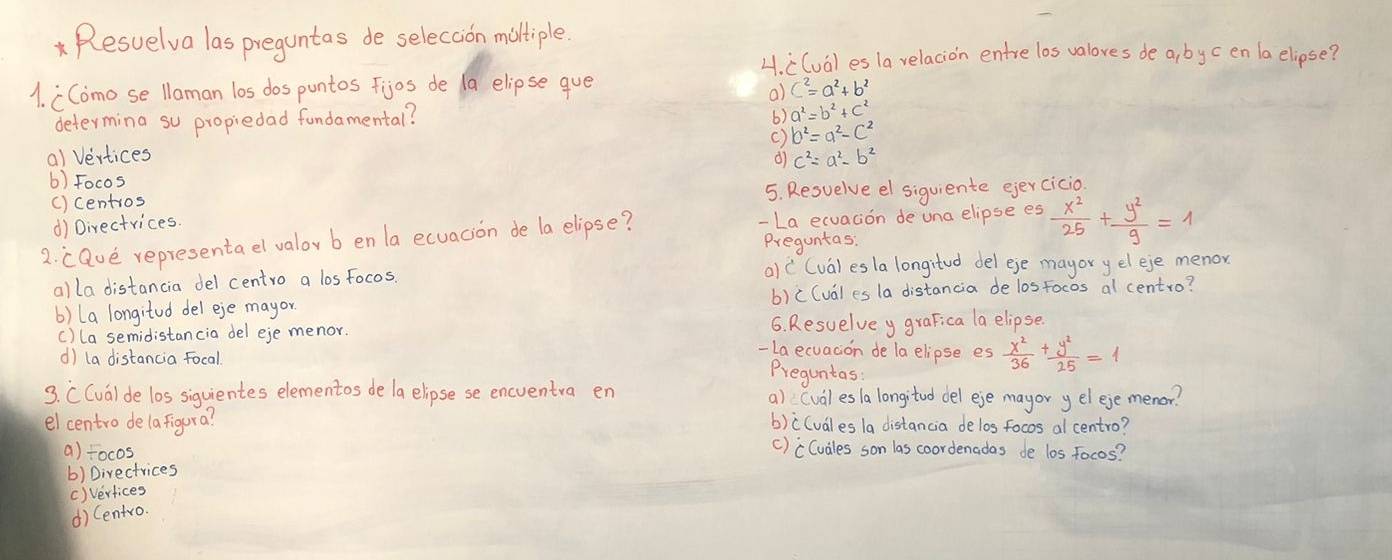 * Resuelva las preguntas de selección múltiple.
1. ¿Cómo se llaman los dos puntos fijos de la elipse que
determina su propiedad fundamental?
a) Vértices
b) Focos
c) Centros
d) Directrices.
2. ¿Qué representa el valor b en la ecuación de la elipse?
a) La distancia del centro a los focos.
b) La longitud del eje mayor.
c) La semidistancia del eje menor.
d) la distancia Focal.
3. ¿Cuál de los siguientes elementos de la elipse se encuentra en
el centro de la figura?
a) Focos
b) Directrices
c) Vértices
d) Centro.
4. ¿Cuál es la relación entre los valores de a, b y c en la elipse?
a) C² = a² + b²
b) a² = b² + C²
c) b² = a² - C²
d) C² = a² - b²
5. Resuelve el siguiente ejercicio.
- La ecuación de una elipse es x²/25 + y²/9 = 1
Preguntas:
a) ¿Cuál es la longitud del eje mayor y el eje menor
b) ¿Cuál es la distancia de los focos al centro?
6. Resuelve y grafica la elipse.
- La ecuación de la elipse es x²/36 + y²/25 = 1
Preguntas:
a) ¿Cuál es la longitud del eje mayor y el eje menor?
b) ¿Cuál es la distancia de los focos al centro?
c) ¿Cuáles son las coordenadas de los focos?